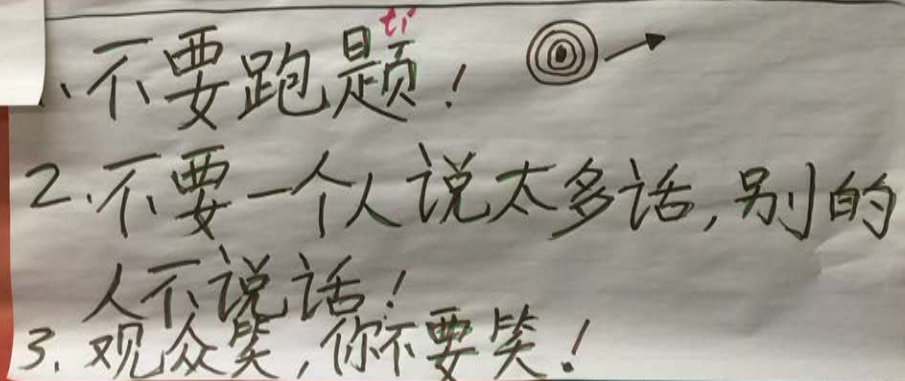 tí
1、不要跑题！
2、不要一个人说太多话，别的
人不说话！
3、观众笑，你不要笑！